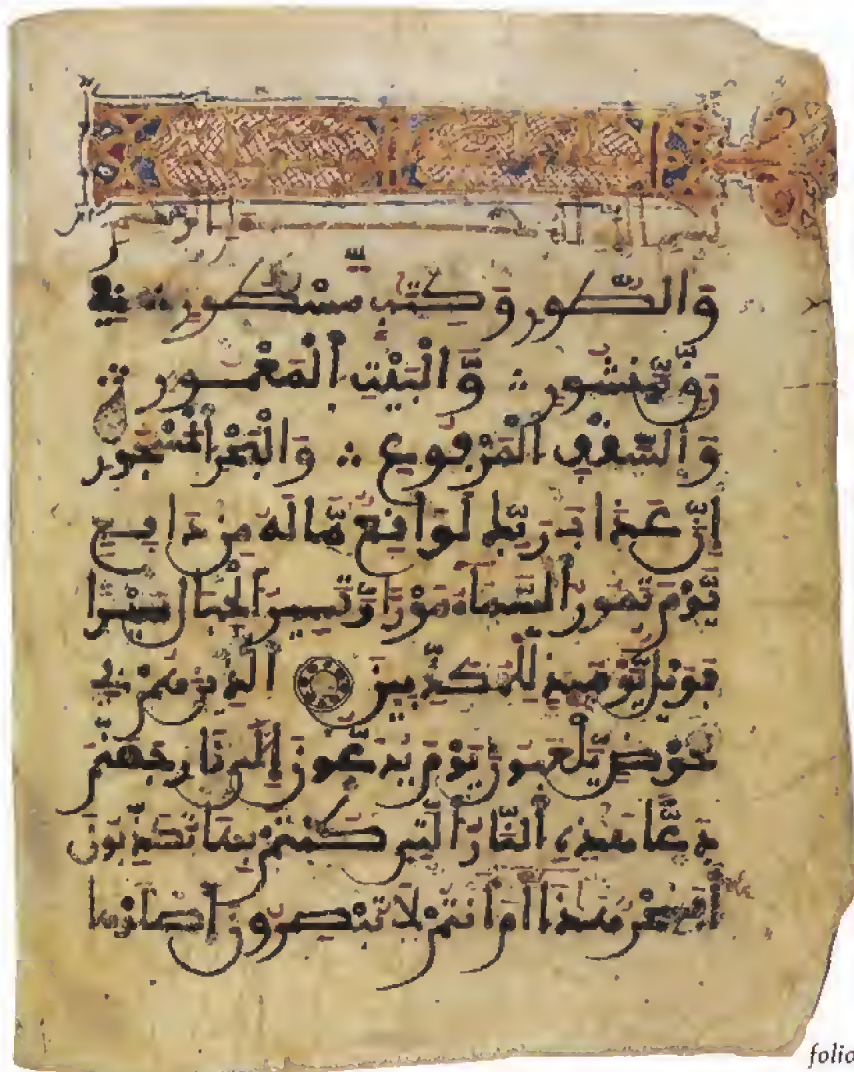 وَالطُّورِ وَكِتَبٍ مَّسْطُورٍ فِي
رَقٍّ مَّنشُورٍ وَالْبَيْتِ الْمَعْمُورِ
وَالسَّقْفِ الْمَرْفُوعِ وَالْبَحْرِ الْمَسْجُورِ
إِنَّ عَذَابَ رَبِّكَ لَوَاقِعٌ مَّا لَهُ مِن دَافِعٍ
يَوْمَ تَمُورُ السَّمَاءُ مَوْرًا وَتَسِيرُ الْجِبَالُ سَيْرًا
فَوَيْلٌ يَوْمَئِذٍ لِّلْمُكَذِّبِينَ الَّذِينَ هُمْ فِي
خَوْضٍ يَلْعَبُونَ يَوْمَ يُدَعُّونَ إِلَى نَارِ جَهَنَّمَ
دَعًّا هَذِهِ النَّارُ الَّتِي كُنتُم بِهَا تُكَذِّبُونَ
أَفَسِحْرٌ هَذَا أَمْ أَنتُمْ لَا تُبْصِرُونَ اصْلَوْهَا
folio